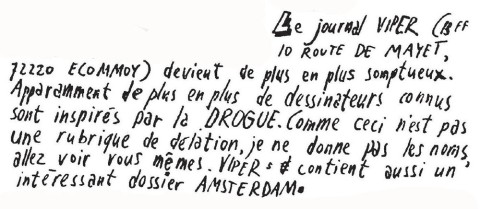 Le journal VIPER (BFF
10 ROUTE DE MAYET,
72220 ECOMMOY) devient de plus en plus somptueux.
Apparamment de plus en plus de dessinateurs connus
sont inspirés par la DROGUE. Comme ceci n'est pas
une rubrique de délation, je ne donne pas les noms,
allez voir vous mêmes. VIPER contient aussi un
intéressant dossier AMSTERDAM.